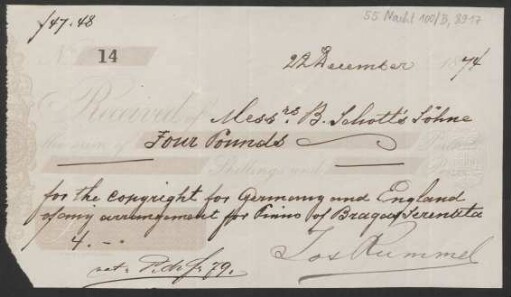 f47.48
55 Nachl 100/B, 3917
No 14
22 December 1874
Received of Messrs. B. Schott's Söhne
the sum of Four Pounds
Shillings and
for the copyright for Germany and England
of my arrangement for Piano of Bragas Serenata
4. -. -
Jos Rummel